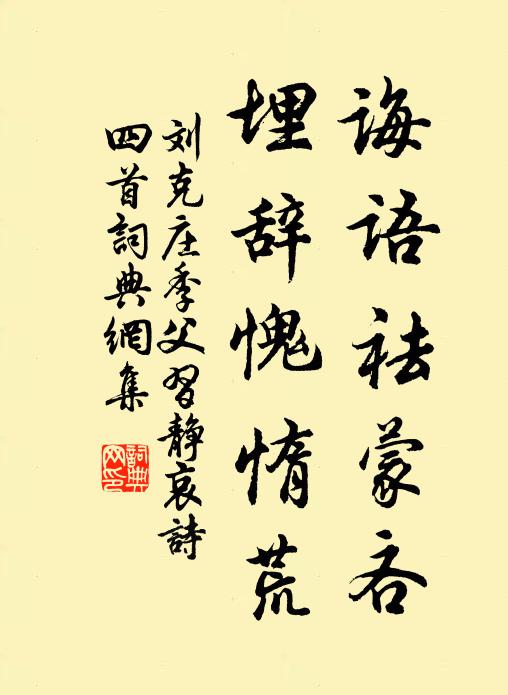 诲语祛蒙吝
埋辞愧惰荒
刘克庄季父习静哀詩
四首詞典網集
詞典
网印